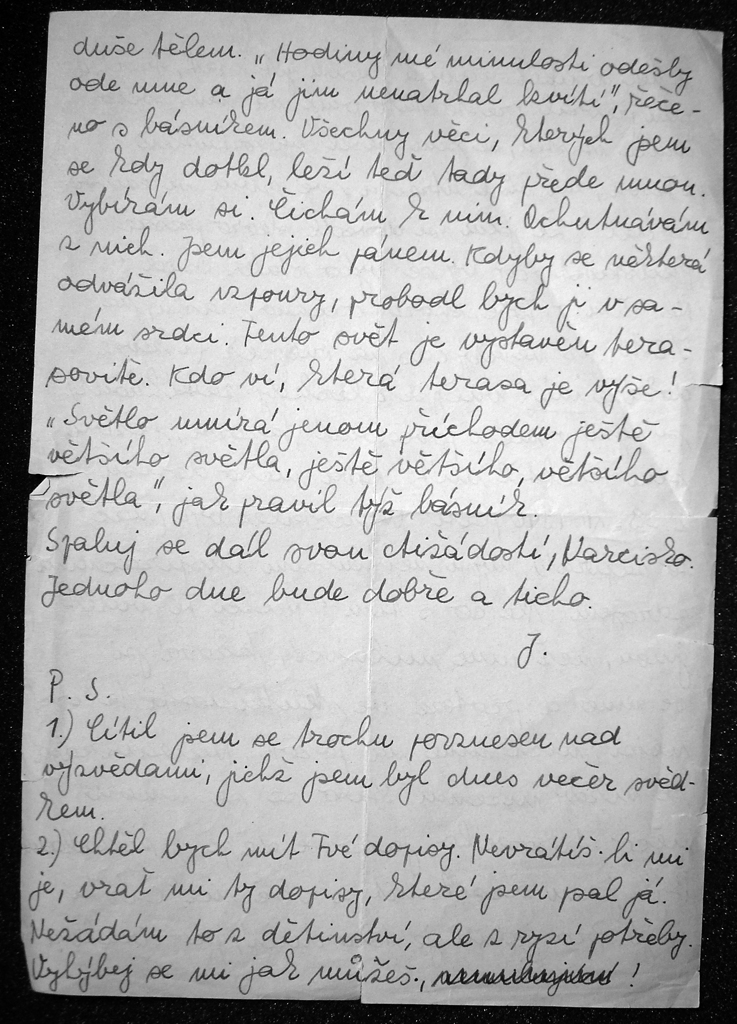 duše tělem. „Hodiny mé minulosti odešly
ode mne a já jim nenatrhal kvítí“, řeče-
no s básníkem. Všechny věci, kterých jsem
se kdy dotkl, leží teď tady přede mnou.
Vybírám si. Čichám k nim. Ochutnávám
z nich. Jsem jejich pánem. Kdyby se některá
odvážila vzpoury, probodl bych ji v sa-
mém srdci. Tento svět je vystavěn tera-
sovitě. Kdo ví, která terasa je výše!
„Světlo umírá jenom příchodem ještě
většího světla, ještě většího, většího
světla“, jak pravil týž básník.
Spaluj se dál svou ctižádostí, Narcisko.
Jednoho dne bude dobře a ticho.
J.
P. S.
1.) Cítil jsem se trochu povznesen nad
výzvědami, jichž jsem byl dnes večer svěd-
kem.
2.) Chtěl bych mít Tvé dopisy. Nevrátíš-li mi
je, vrať mi ty dopisy, které jsem psal já.
Nežádám to z dětinství, ale z ryzí potřeby.
Vyhýbej se mi jak můžeš, !